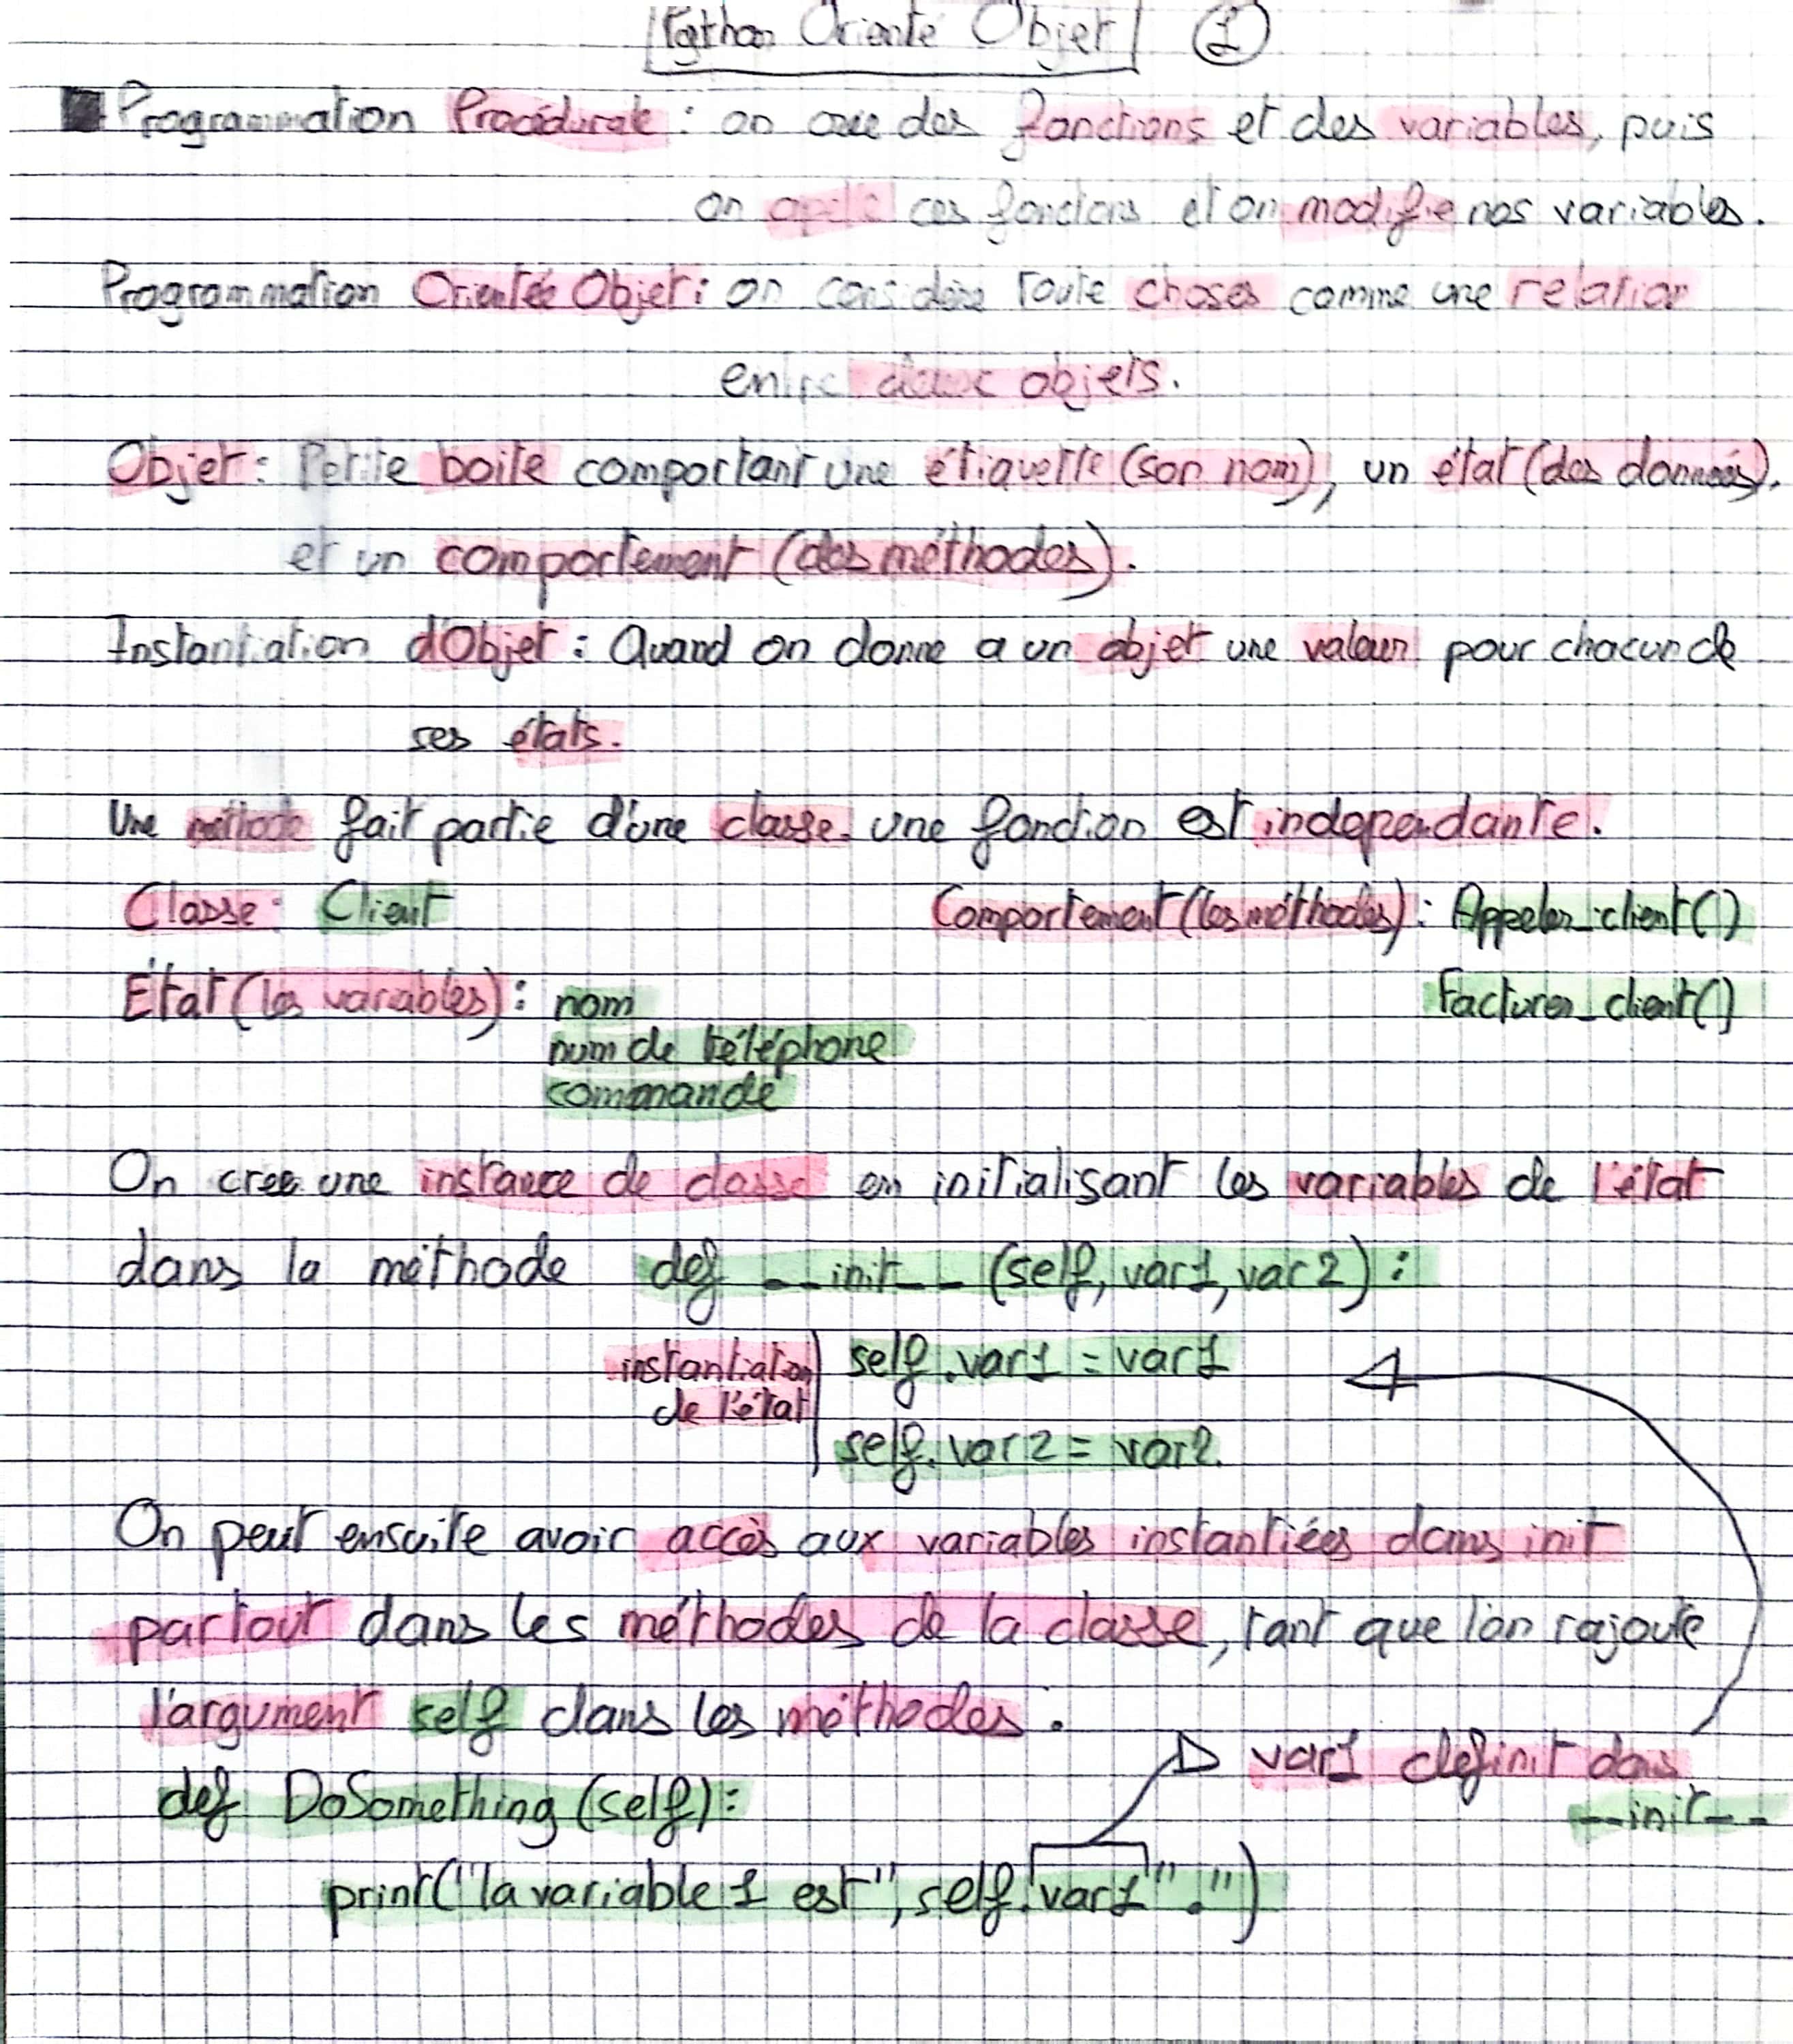 Python Oriente Objet 1
Programmation Procédurale : on cree des fonctions et des variables, puis
on apele ces fonctions et on modifie nos variables.
Programmation Orientée Objet : on considère toute choses comme une relation
entre deux objets.
Objet : Petite boite comportant une étiquette (son nom), un état (des données),
et un comportement (des méthodes).
Instantiation d'Objet : Quand on donne a un objet une valeur pour chacun de
ses états.
Une méthode fait partie d'une classe. une fonction est independante.
Classe : Client Comportement (les méthodes) : Appeler_client()
État (les variables) : nom Facturer_client()
num de téléphone
commande
On cree une instance de classe en initialisant les variables de l'état
dans la méthode def __init__ (self, var1, var2) :
instantiation self.var1 = var1
de l'état
self.var2 = var2.
On peut ensuite avoir accès aux variables instantiées dans init
partout dans les méthodes de la classe, tant que l'on rajoute
l'argument self dans les méthodes.
var1 definit dans
def DoSomething (self) :
__init__
print("la variable 1 est", self.var1".")